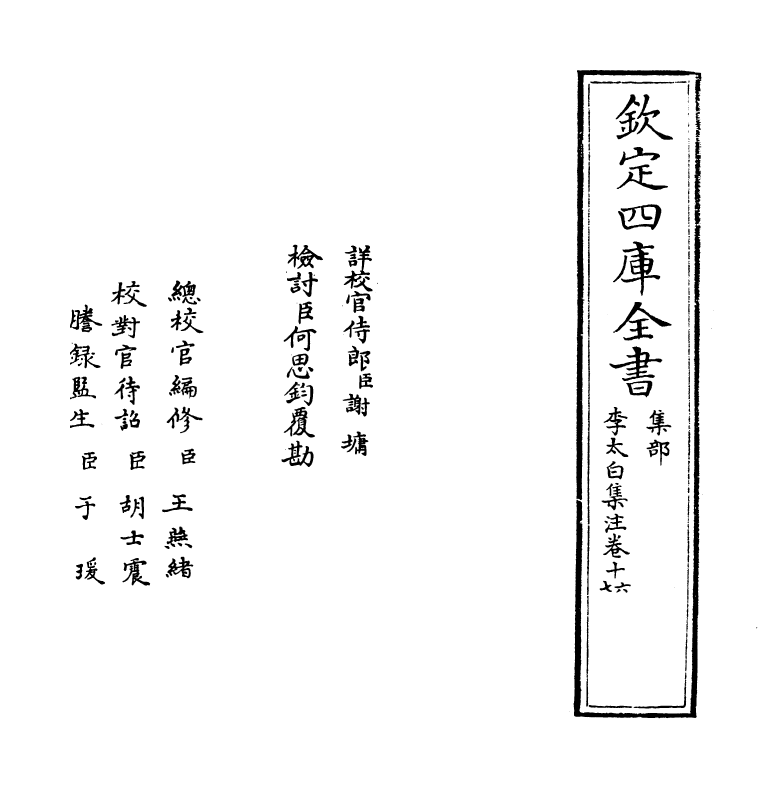 欽定四庫全書
集部
李太白集注卷十六七
詳校官侍郎臣謝墉
檢討臣何思鈞覆勘
總校官編修臣王燕緒
校對官待詔臣胡士震
謄録監生臣于瑗